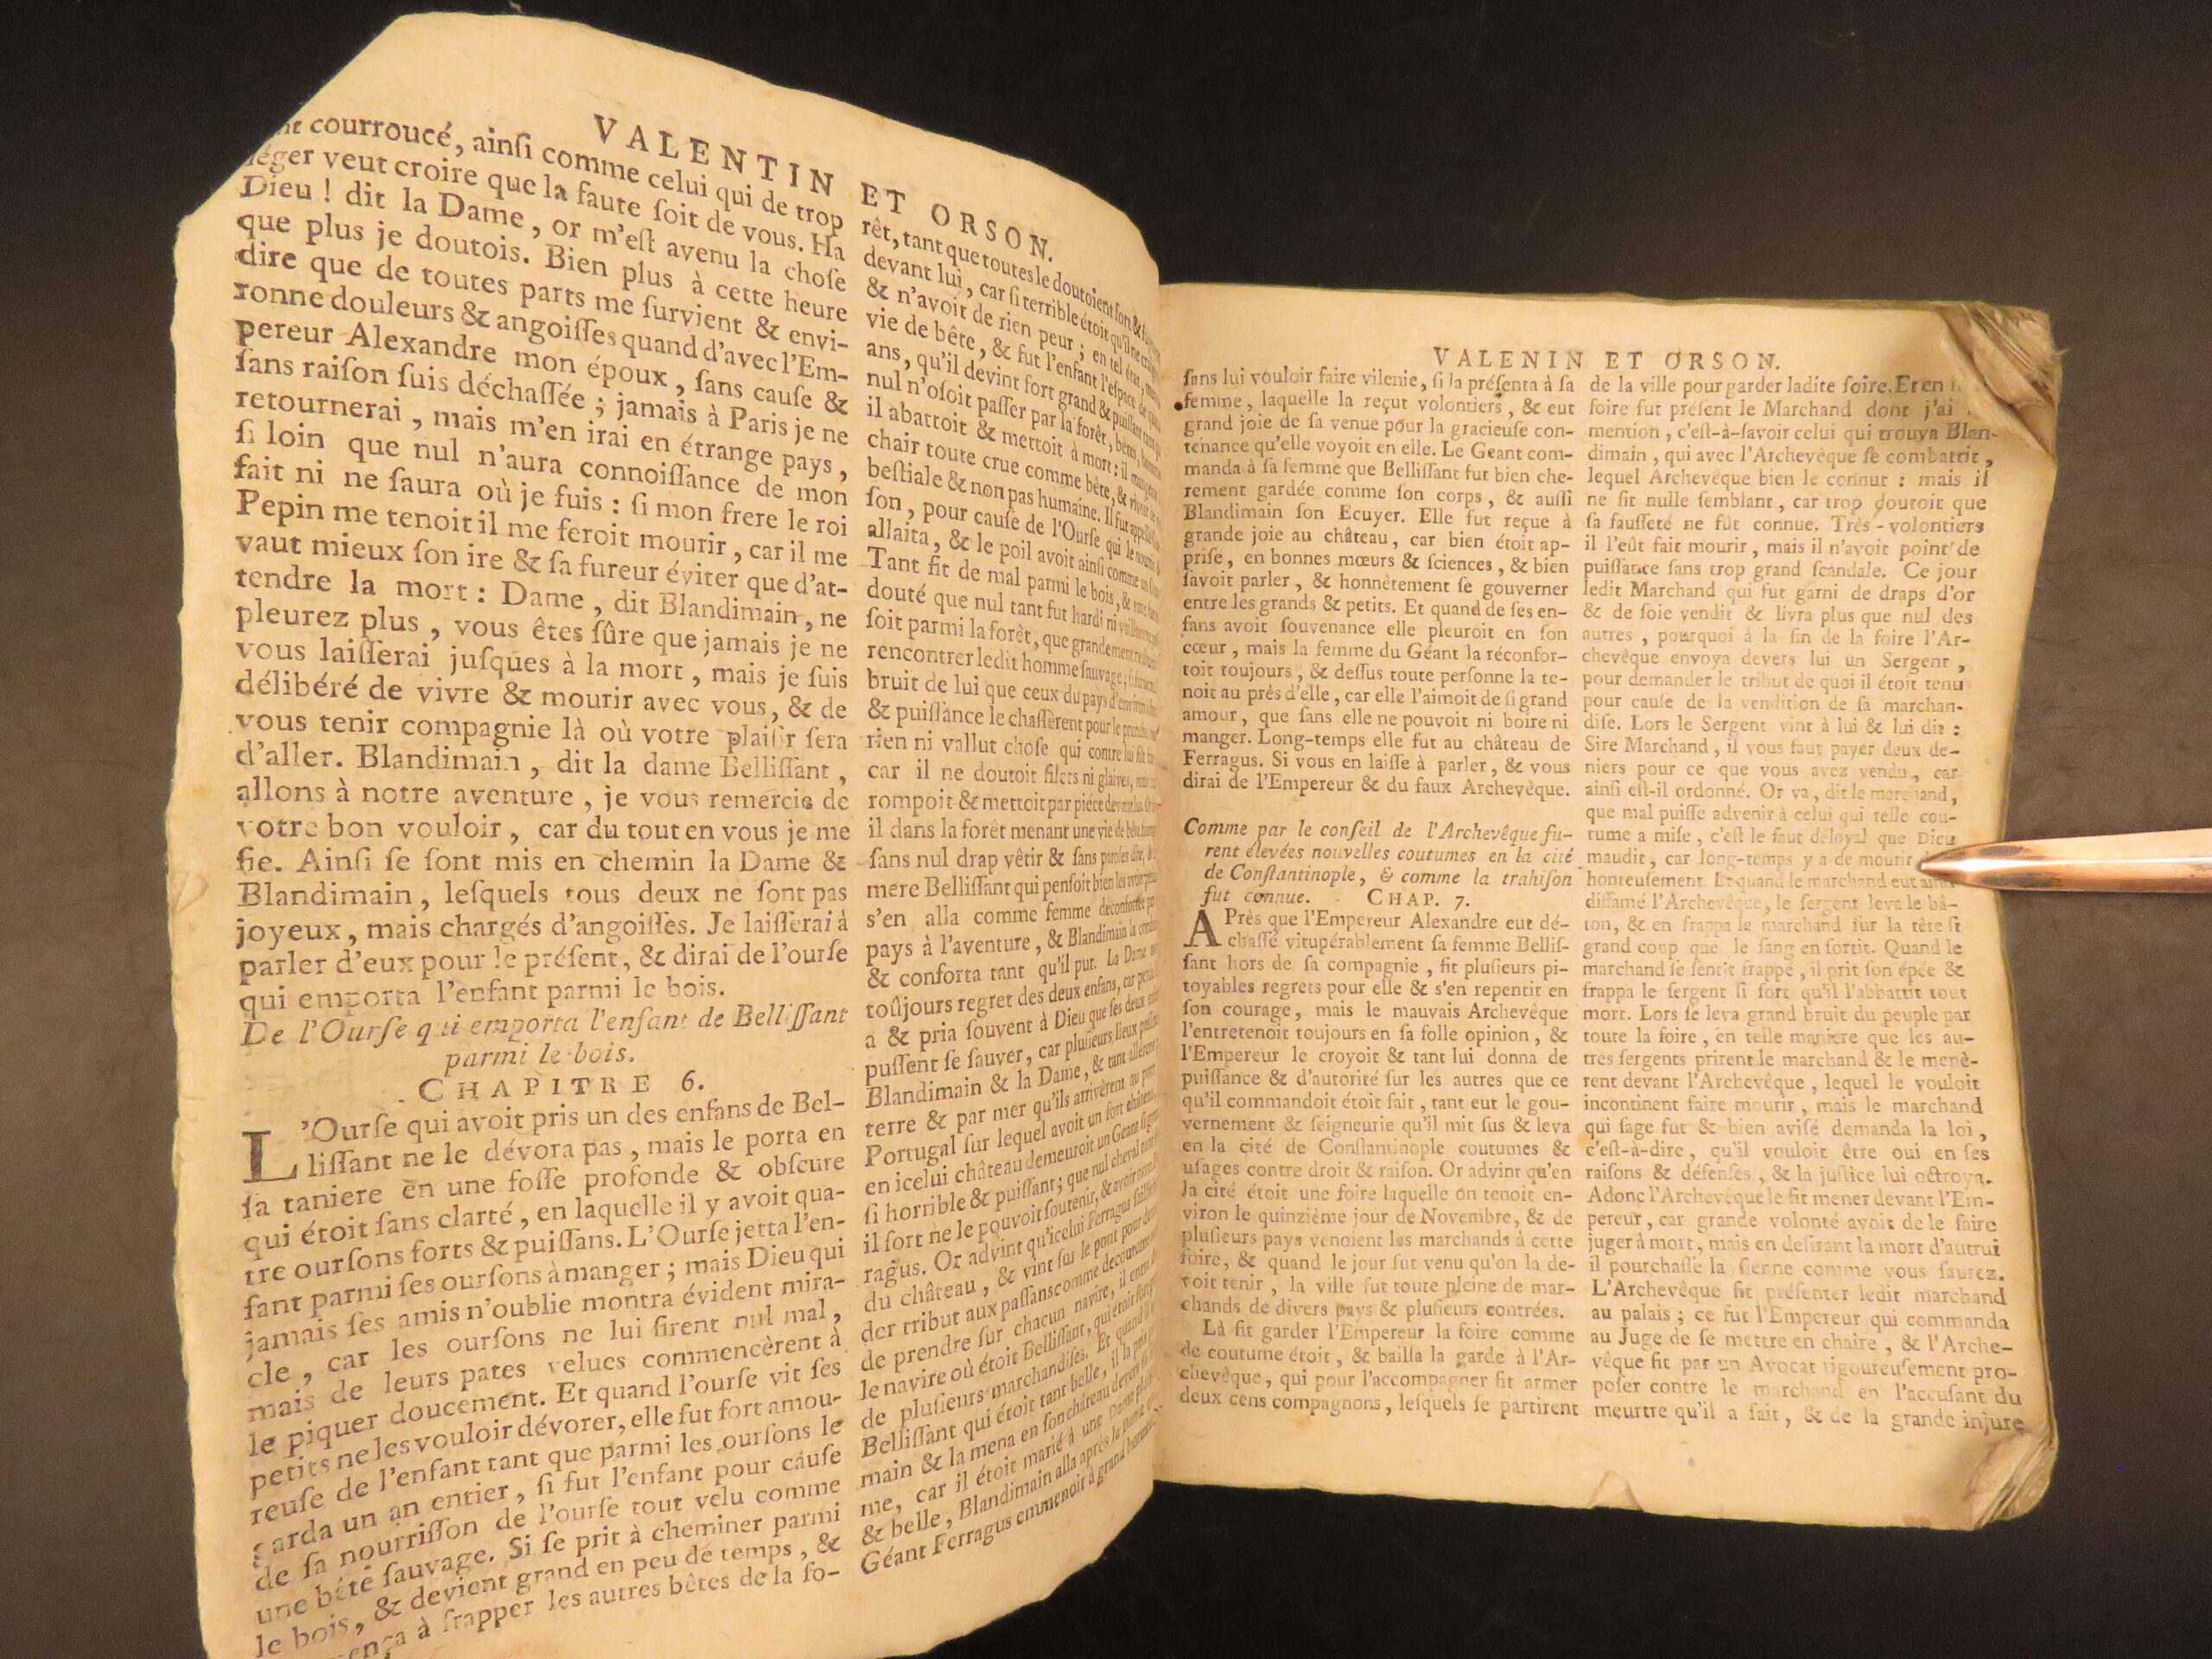 VALENTIN ET ORSON.
courroucé, ainſi comme celui qui de trop
léger veut croire que la faute ſoit de vous. Ha
Dieu ! dit la Dame, or m'eſt avenu la choſe
que plus je doutois. Bien plus à cette heure
dire que de toutes parts me ſurvient & envi-
ronne douleurs & angoiſſes quand d'avec l'Em-
pereur Alexandre mon époux, ſans cauſe &
ſans raiſon ſuis déchaſſée ; jamais à Paris je ne
retournerai, mais m'en irai en étrange pays,
ſi loin que nul n'aura connoiſſance de mon
fait ni ne ſaura où je fuis : ſi mon frere le roi
Pepin me tenoit il me feroit mourir, car il me
vaut mieux ſon ire & ſa fureur éviter que d'at-
tendre la mort : Dame, dit Blandimain, ne
pleurez plus, vous êtes ſûre que jamais je ne
vous laiſſerai juſques à la mort, mais je ſuis
délibéré de vivre & mourir avec vous, & de
vous tenir compagnie là où votre plaiſir ſera
d'aller. Blandimain, dit la dame Belliſſant,
allons à notre aventure, je vous remercie de
votre bon vouloir, car du tout en vous je me
fie. Ainſi ſe ſont mis en chemin la Dame &
Blandimain, leſquels tous deux ne ſont pas
joyeux, mais chargés d'angoiſſes. Je laiſſerai à
parler d'eux pour le préſent, & dirai de l'ourſe
qui emporta l'enfant parmi le bois.
De l'Ourſe qui emporta l'enfant de Belliſſant
parmi le bois.
CHAPITRE 6.
L'Ourſe qui avoit pris un des enfans de Bel-
liſſant ne le dévora pas, mais le porta en
ſa taniere en une foſſe profonde & obſcure
qui étoit ſans clarté, en laquelle il y avoit qua-
tre ourſons forts & puiſſans. L'Ourſe jetta l'en-
fant parmi ſes ourſons à manger ; mais Dieu qui
jamais ſes amis n'oublie montra évident mira-
cle, car les ourſons ne lui firent nul mal,
mais de leurs pates velues commencèrent à
le piquer doucement. Et quand l'ourſe vit ſes
petits ne les vouloir dévorer, elle fut fort amou-
reuſe de l'enfant tant que parmi les ourſons le
garda un an entier, ſi fut l'enfant pour cauſe
de ſa nourriſſon de l'ourſe tout velu comme
une bête ſauvage. Si ſe prit à cheminer parmi
le bois, & devient grand en peu de temps, &
à frapper les autres bêtes de la fo-
rêt, tant que toutes le doutoient fort &
devant lui, car ſi terrible étoit qu'il ne
& n'avoit de rien peur ; en tel état
vie de bête, & fut l'enfant l'eſpace de
ans, qu'il devint fort grand & puiſſant
nul n'oſoit paſſer par la forêt, bêtes,
il abattoit & mettoit à mort : il mangeoit
chair toute crue comme bête, & vivoit de
beſtiale & non pas humaine. Il fut appellé
ſon, pour cauſe de l'Ourſe qui le nourrit &
allaita, & le poil avoit ainſi comme un
Tant fit de mal parmi le bois, & tant
douté que nul tant fut hardi ni
ſoit parmi la forêt, que grandement ne
rencontrer ledit homme ſauvage ;
bruit de lui que ceux du pays d'environ
& puiſſance le chaſſèrent pour le prendre
rien ni vallut choſe qui contre lui fût
car il ne doutoit filets ni glaives, mais
rompoit & mettoit par piéce devant lui.
il dans la forêt menant une vie de bête
ſans nul drap vêtir & ſans paroles dire,
mere Belliſſant qui penſoit bien les avoir
s'en alla comme femme déconfortée
pays à l'aventure, & Blandimain la
& conforta tant qu'il put. La Dame
toûjours regret des deux enfans, car
a & pria ſouvent à Dieu que ſes deux
puſſent ſe ſauver, car pluſieurs lieux
Blandimain & la Dame, & tant allèrent
terre & par mer qu'ils arrivèrent au port
Portugal ſur lequel avoit un fort château,
en icelui château demeuroit un Geant
ſi horrible & puiſſant ; que nul cheval
il fort ne le pouvoit ſoutenir, & avoit nom
ragus. Or advint qu'icelui Ferragus
du château, & vint ſur le pont pour
der tribut aux paſſans comme de coutume
de prendre ſur chacun navire, il entra
le navire où étoit Belliſſant, qui étoit
de pluſieurs marchandiſes. Et quand il
Belliſſant qui étoit tant belle, il la prit
main & la mena en ſon château devers
me, car il étoit marié à une Dame
& belle, Blandimain alla après la
Géant Ferragus emmenoit à grand
VALENIN ET ORSON.
ſans lui vouloir faire vilenie, ſi la préſenta à ſa
femme, laquelle la reçut volontiers, & eut
grand joie de ſa venue pour la gracieuſe con-
tenance qu'elle voyoit en elle. Le Geant com-
manda à ſa femme que Belliſſant fut bien che-
rement gardée comme ſon corps, & auſſi
Blandimain ſon Ecuyer. Elle fut reçue à
grande joie au château, car bien étoit ap-
priſe, en bonnes mœurs & ſciences, & bien
ſavoit parler, & honnêtement ſe gouverner
entre les grands & petits. Et quand de ſes en-
fans avoit ſouvenance elle pleuroit en ſon
cœur, mais la femme du Géant la réconfor-
toit toujours, & deſſus toute perſonne la te-
noit au près d'elle, car elle l'aimoit de ſi grand
amour, que ſans elle ne pouvoit ni boire ni
manger. Long-temps elle fut au château de
Ferragus. Si vous en laiſſe à parler, & vous
dirai de l'Empereur & du faux Archevêque.
Comme par le conſeil de l'Archevêque fu-
rent élevées nouvelles coutumes en la cité
de Conſtantinople, & comme la trahiſon
fut connue. CHAP. 7.
APrès que l'Empereur Alexandre eut dé-
chaſſé vitupérablement ſa femme Belliſ-
ſant hors de ſa compagnie, fit pluſieurs pi-
toyables regrets pour elle & s'en repentit en
ſon courage, mais le mauvais Archevêque
l'entretenoit toujours en ſa folle opinion, &
l'Empereur le croyoit & tant lui donna de
puiſſance & d'autorité ſur les autres que ce
qu'il commandoit étoit fait, tant eut le gou-
vernement & ſeigneurie qu'il mit ſus & leva
en la cité de Conſtantinople coutumes &
uſages contre droit & raiſon. Or advint qu'en
la cité étoit une foire laquelle on tenoit en-
viron le quinzième jour de Novembre, & de
pluſieurs pays venoient les marchands à cette
foire, & quand le jour fut venu qu'on la de-
voit tenir, la ville fut toute pleine de mar-
chands de divers pays & pluſieurs contrées.
Là fit garder l'Empereur la foire comme
de coutume étoit, & bailla la garde à l'Ar-
chevêque, qui pour l'accompagner fit armer
deux cens compagnons, leſquels ſe partirent
de la ville pour garder ladite foire. Et en
foire fut préſent le Marchand dont j'ai
mention, c'eſt-à-ſavoir celui qui trouva Blan-
dimain, qui avec l'Archevêque ſe combattit,
lequel Archevêque bien le connut : mais il
ne fit nulle ſemblant, car trop doutoit que
ſa fauſſeté ne fût connue. Très-volontiers
il l'eût fait mourir, mais il n'avoit point de
puiſſance ſans trop grand ſcandale. Ce jour
ledit Marchand qui fut garni de draps d'or
& de ſoie vendit & livra plus que nul des
autres, pourquoi à la fin de la foire l'Ar-
chevêque envoya devers lui un Sergent,
pour demander le tribut de quoi il étoit tenu
pour cauſe de la vendition de ſa marchan-
diſe. Lors le Sergent vint à lui & lui dit :
Sire Marchand, il vous faut payer deux de-
niers pour ce que vous avez vendu, car
ainſi eſt-il ordonné. Or va, dit le marchand,
que mal puiſſe advenir à celui qui telle cou-
tume a miſe, c'eſt le faut déloyal que Dieu
maudit, car long-temps y a de mourir
honteuſement. Et quand le marchand eut ainſi
diffamé l'Archevêque, le ſergent leva le bâ-
ton, & en frappa le marchand ſur la tête ſi
grand coup que le ſang en ſortit. Quand le
marchand ſe ſentit frappé, il prit ſon épée &
frappa le ſergent ſi fort qu'il l'abbattit tout
mort. Lors ſe leva grand bruit du peuple par
toute la foire, en telle maniere que les au-
tres ſergents prirent le marchand & le menè-
rent devant l'Archevêque, lequel le vouloit
incontinent faire mourir, mais le marchand
qui ſage fut & bien aviſé demanda la loi,
c'eſt-à-dire, qu'il vouloit être oui en ſes
raiſons & défenſes, & la juſtice lui octroya.
Adonc l'Archevêque le fit mener devant l'Em-
pereur, car grande volonté avoit de le faire
juger à mort, mais en deſirant la mort d'autrui
il pourchaſſe la ſienne comme vous ſaurez.
L'Archevêque fit préſenter ledit marchand
au palais ; ce fut l'Empereur qui commanda
au Juge de ſe mettre en chaire, & l'Arche-
vêque fit par un Avocat rigoureuſement pro-
poſer contre le marchand en l'accuſant du
meurtre qu'il a fait, & de la grande injure